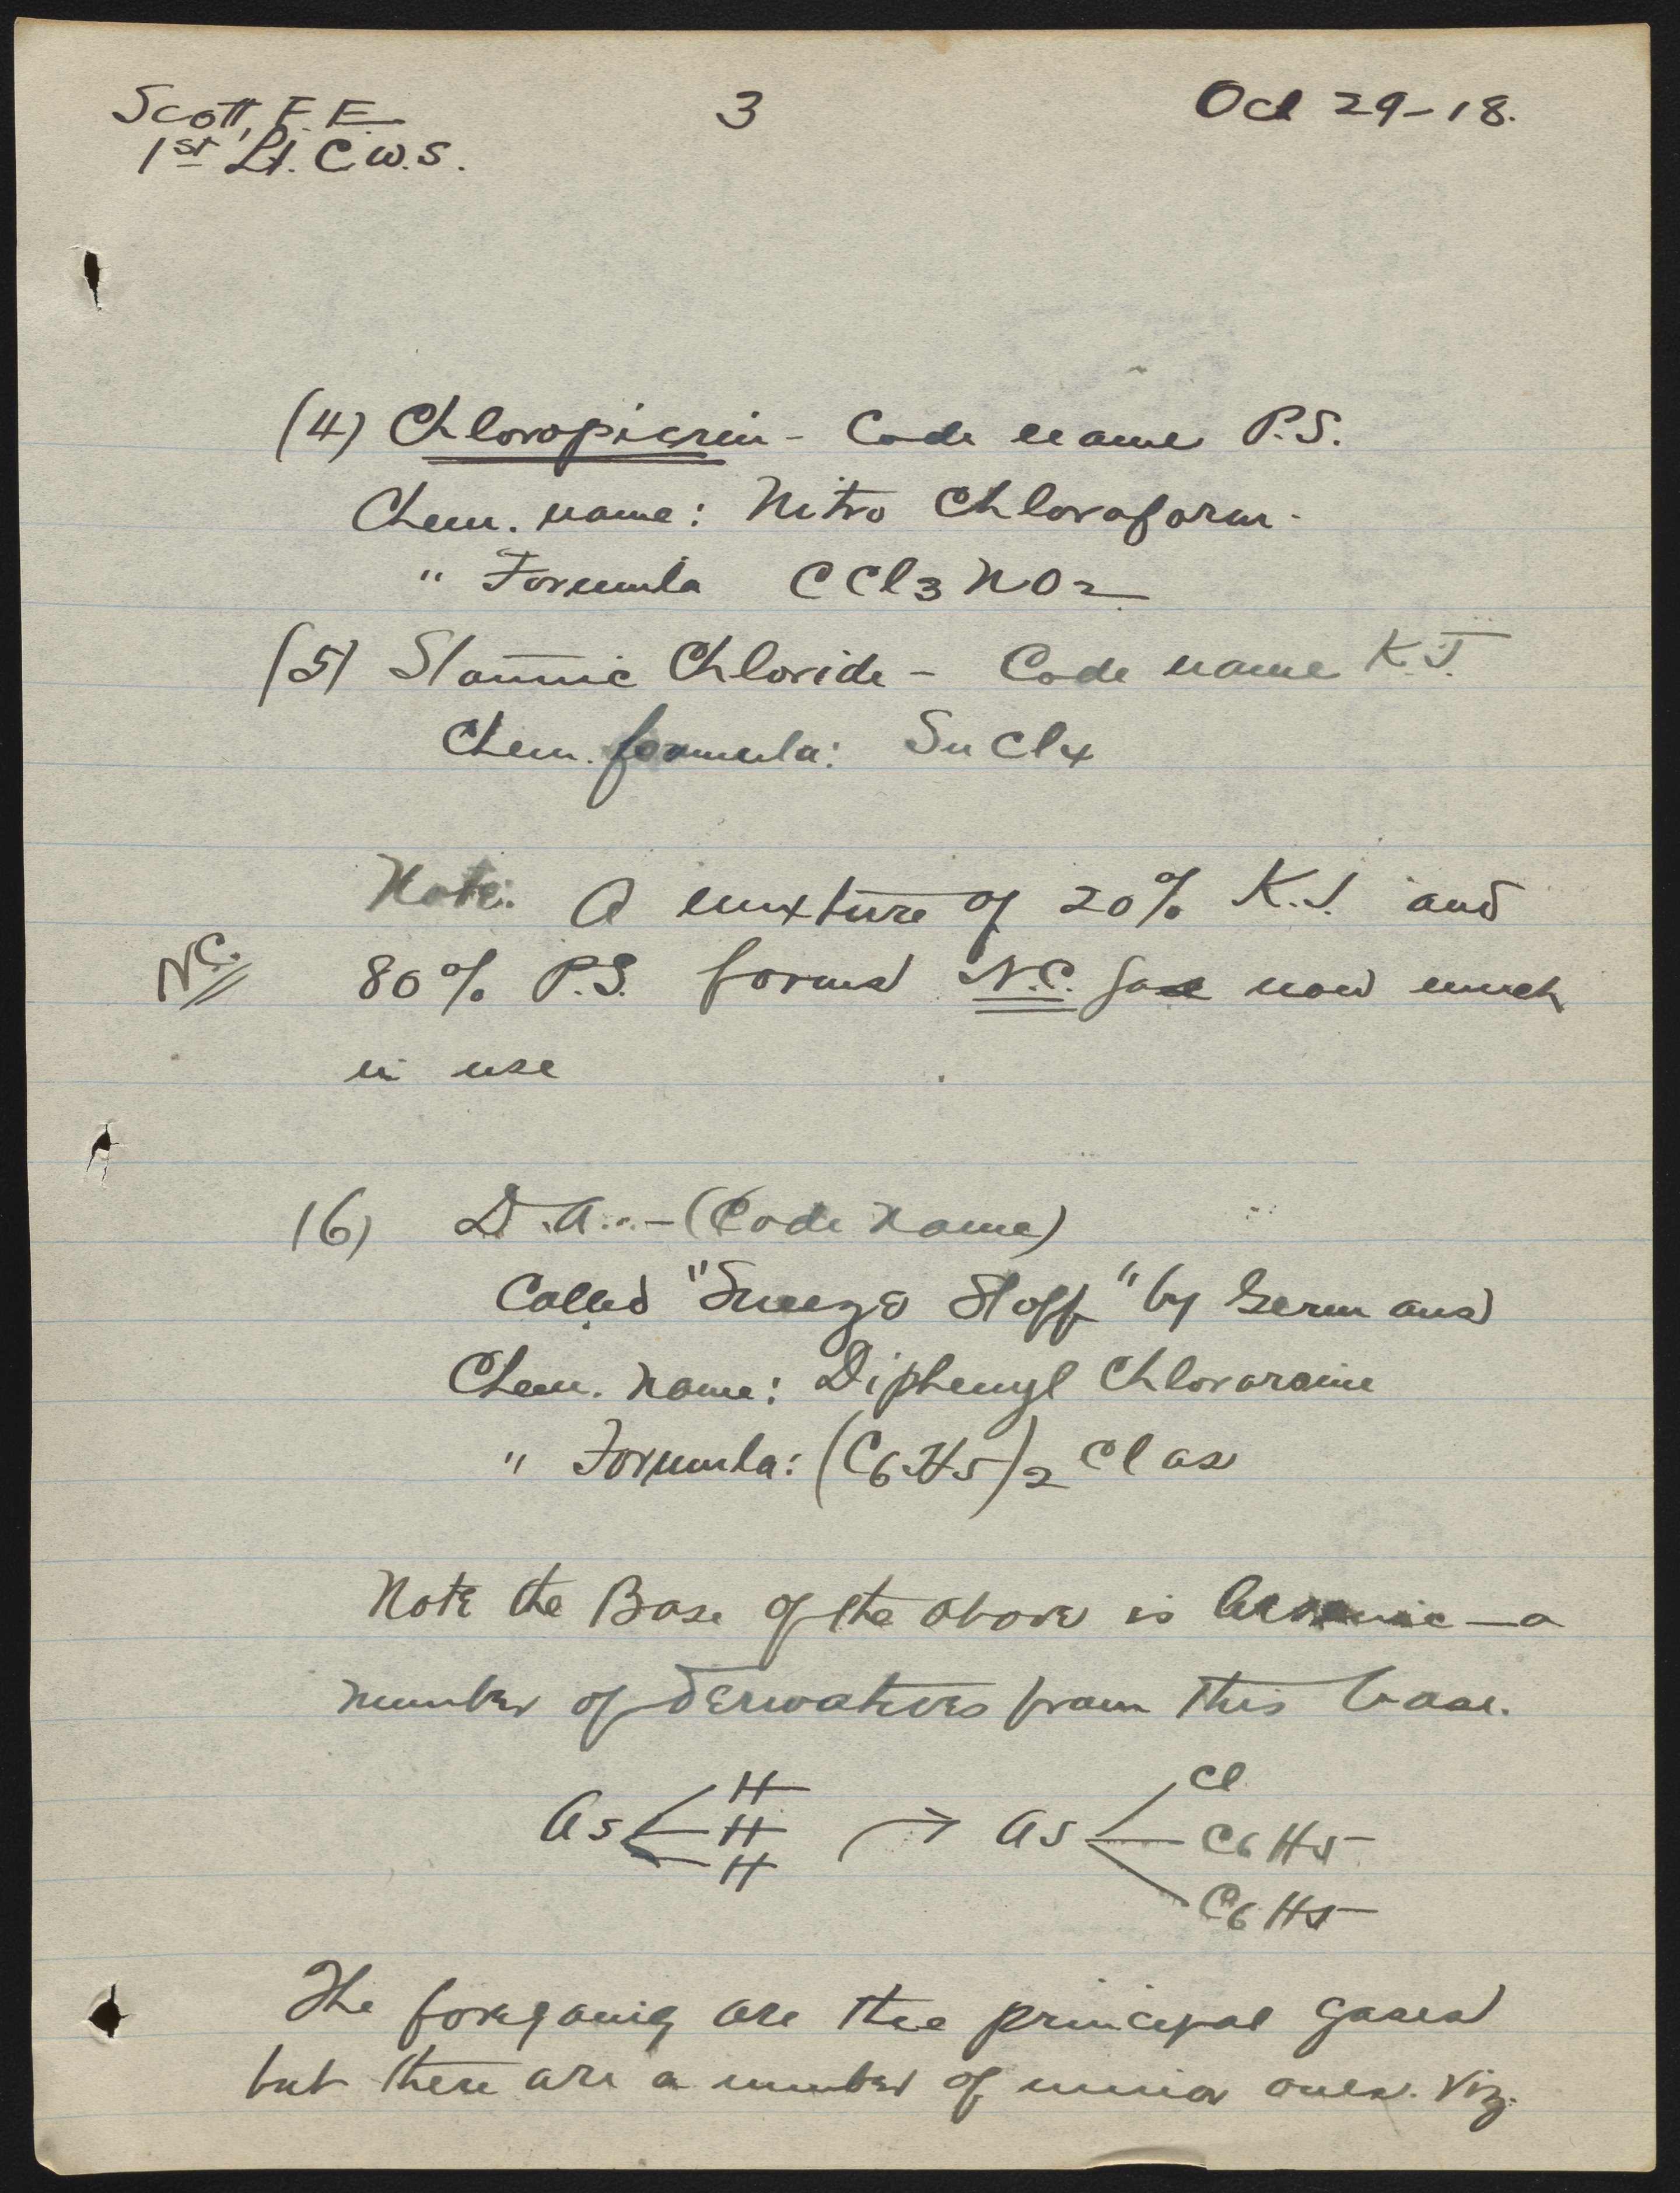 Scott, F. E. 3 Oct 29-18.
1st Lt. C.W.S.
(4) Chloropicrin - Code name P.S.
Chem. name: Nitro Chloroform.
" Formula CCl3NO2
(5) Stannic Chloride - Code name K.J.
Chem. formula: SnCl4
Note: A mixture of 20% K.J. and
N.C. 80% P.S. forms N.C. gas now much
in use
(6) D.A. - (Code name)
Called "Sneeze Stoff" by Germans
Chem. name: Diphenyl Chlorarsine
" Formula: (C6H5)2 Cl as
Note the Base of the above is Arsenic - a
number of derivatives from this base.
As H H H → As Cl C6H5 C6H5
The foregoing are the principal gases
but there are a number of minor ones. Viz: